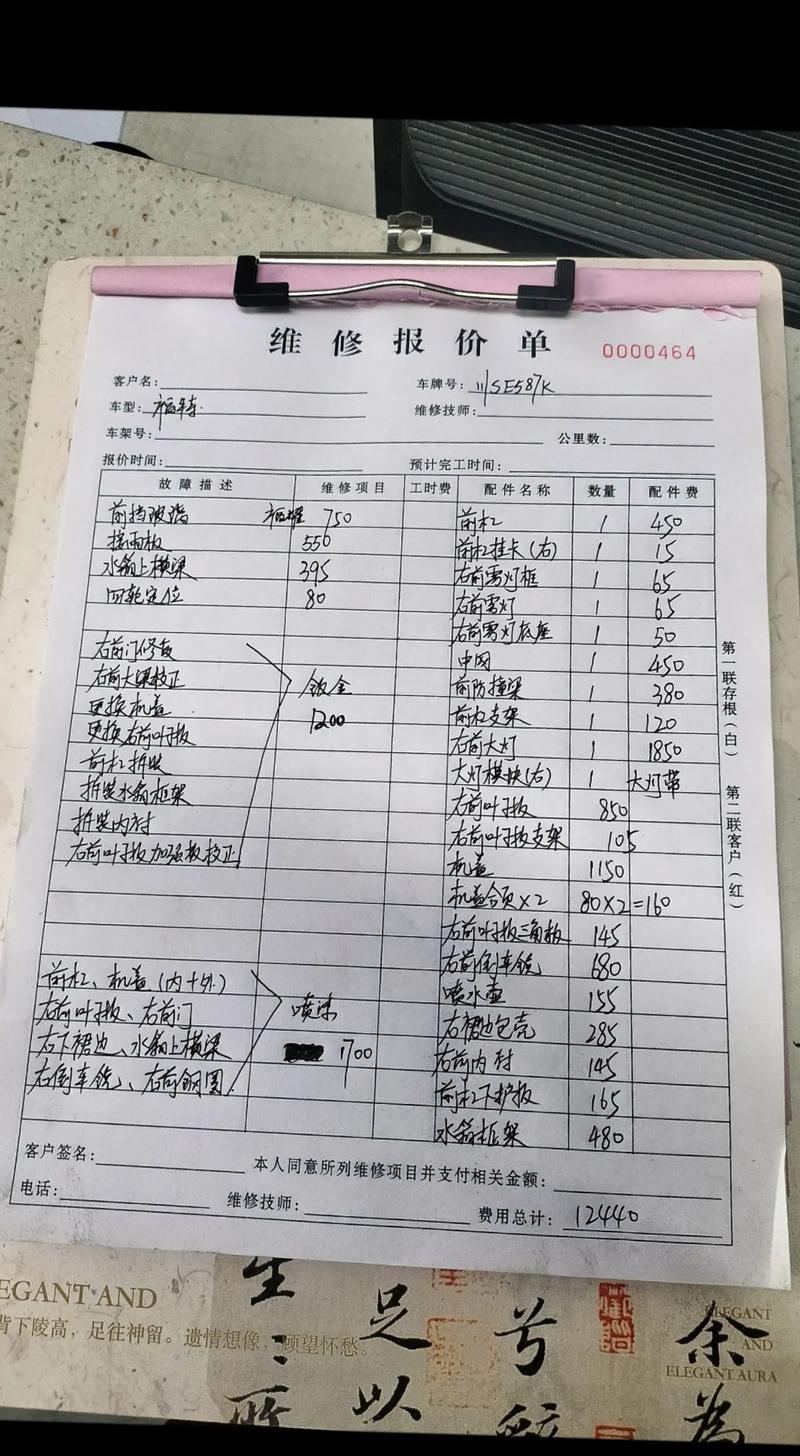 维修报价单
0000464
客户名: 车牌号: 川SE587K
车型: 福特 维修技师:
车架号: 公里数:
报价时间: 预计完工时间:
故障描述 维修项目 工时费 配件名称 数量 配件费
前挡玻璃 福耀 750 前杠 1 450
接雨板 550 前杠挂卡(右) 1 15
水箱上横梁 395 右前雾灯框 1 65
四轮定位 80 右前雾灯 1 65
右前雾灯底座 1 50
右前门修复 中网 1 450
右前大梁校正 钣金 前防撞梁 1 380
更换机盖 1200 前杠支架 1 120
更换右前叶子板 右前大灯 1 1850
前杠拆装 大灯模块(右) 1 大灯带
拆装水箱框架 右前叶子板 850
拆装内衬 右前叶子板支架 105
右前叶子板加强板校正 机盖 1150
机盖合页×2 80×2=160
右前叶子板三角板 145
右前倒车镜 680
前杠、机盖(内+外) 喷漆 喷水壶 155
右前叶子板、右前门 右裙边包壳 285
右下裙边、水箱上横梁 1700 右前内衬 145
右倒车镜、右前钢圈 前杠下护板 165
水箱框架 480
客户签名: 本人同意所列维修项目并支付相关金额:
电话: 维修技师: 费用总计: 12440
第一联存根(白)
第二联客户(红)
EGANT AND
背下陵高,足往神留。遗情想像,顾望怀愁。
生
足
以
兮
余
为
ELEGANT
AND
ELEGANT AURA